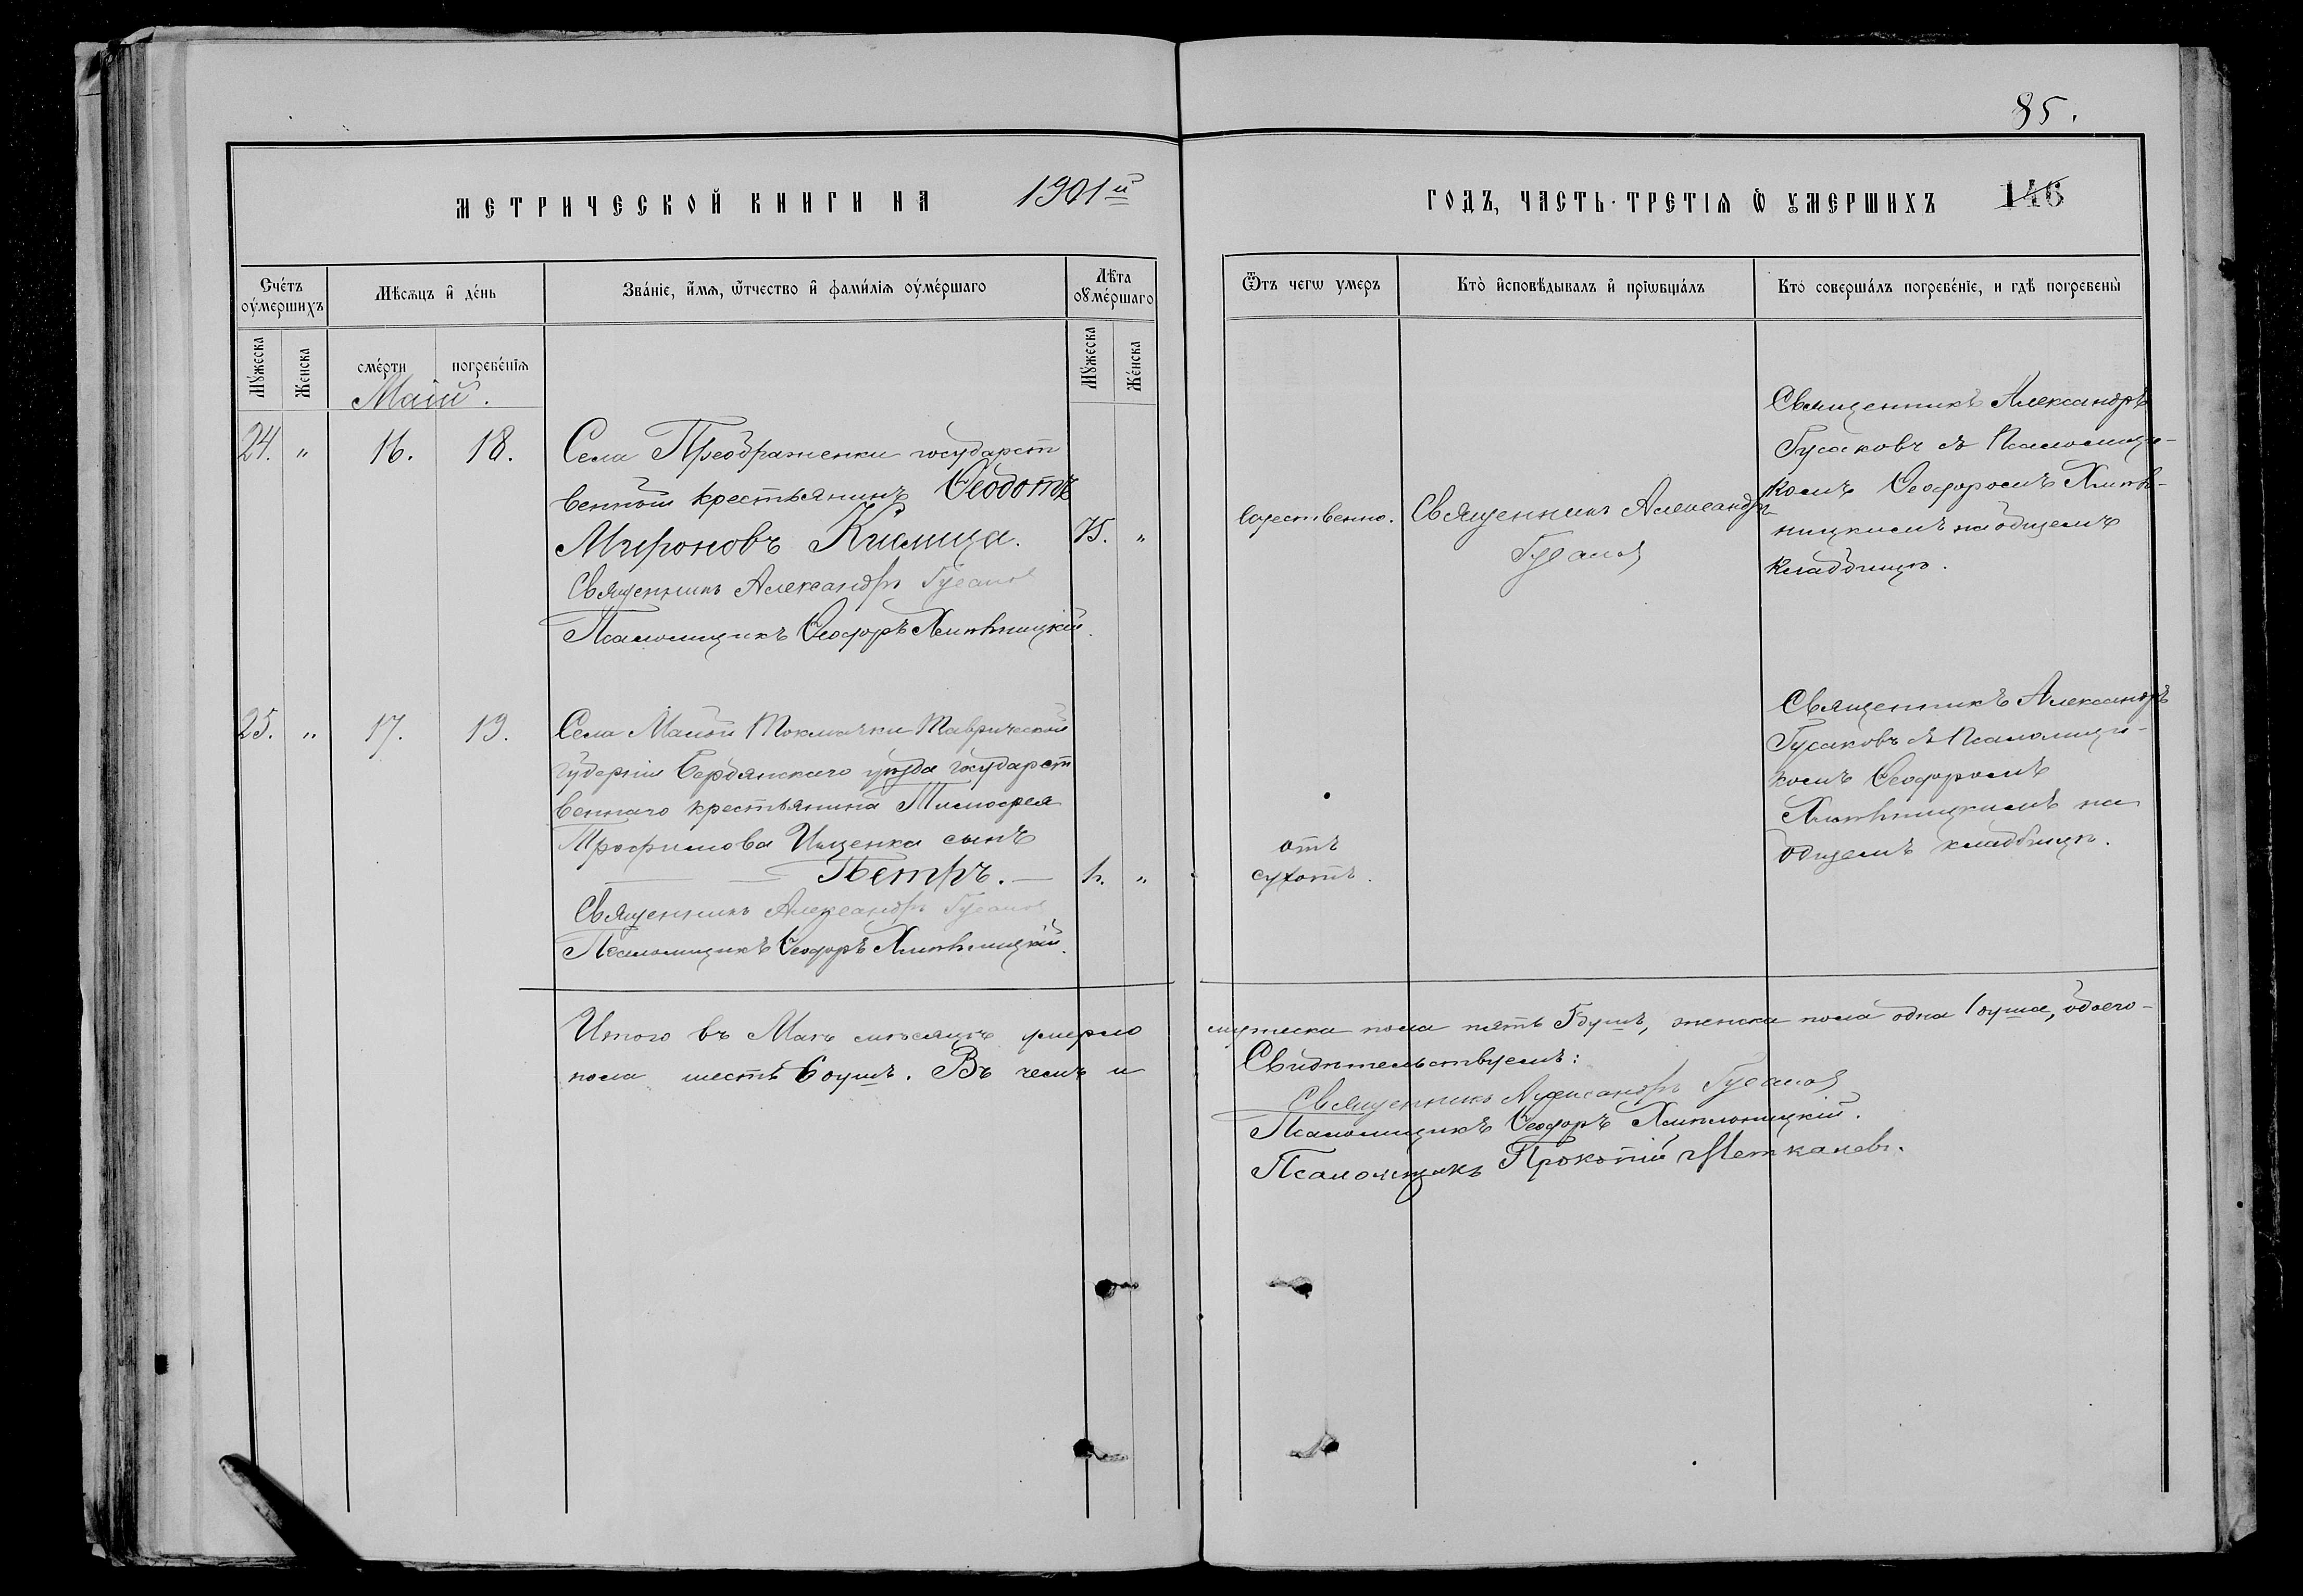 85.
МЕТРИЧЕСКОЙ КНИГИ НА 1901й ГОДЪ, ЧАСТЬ ТРЕТІѦ Ѡ УМЕРШИХЪ 146
Сче́тъ оу҆ме́ршихъ
Мѣ́сѧцъ и҆ де́нь
Зва́нїе, и҆́мѧ, ѻ҆́тчество и҆ фами́лїѧ оу҆ме́ршагѡ
Лѣ́та оу҆ме́ршагѡ
Ѿтъ чегѡ умеръ
Кто̀ и҆сповѣ́дывалъ и҆ прїѡбща́лъ
Кто̀ соверша́лъ погребе́нїе, и гдѣ̀ погребены̀
Мꙋ́жеска
Же́нска
сме́рти
погребе́нїѧ
Мꙋ́жеска
Же́нска
Маій.
24. " 16. 18.
Села Преображенки государст
венный крестьянинъ Ѳеодотъ
Мироновъ Кислица. 75. "
Священникъ Александръ Гусаков
Псаломщикъ Ѳеодоръ
естественно.
Священникъ Александръ
Гусаков
Священникъ Александръ
Гусаковъ съ Псаломщи-
комъ Ѳеодоромъ
ницкимъ на общемъ
кладбищѣ.
25. " 17. 19.
Села Малой Токмачки Таврической
губерніи Бердянскаго уѣзда государст
веннаго крестьянина Тимофея
Трофимова Ищенка сынъ
Петръ. "
Священникъ Александръ Гусаков
Псаломщикъ Ѳеодоръ
отъ
сухотъ.
Священникъ Александръ
Гусаковъ съ Псаломщи-
комъ Ѳеодоромъ
на
общемъ кладбищѣ.
Итого въ Маѣ мѣсяцѣ умерло мужеска пола пять 5 душъ, женска пола одна 1 душа, обоего-
пола шесть 6 душъ. Въ чемъ и Свидѣтельствуемъ:
Священникъ Александръ Гусаков
Псаломщикъ Ѳеодоръ
Псаломщикъ Прокопій